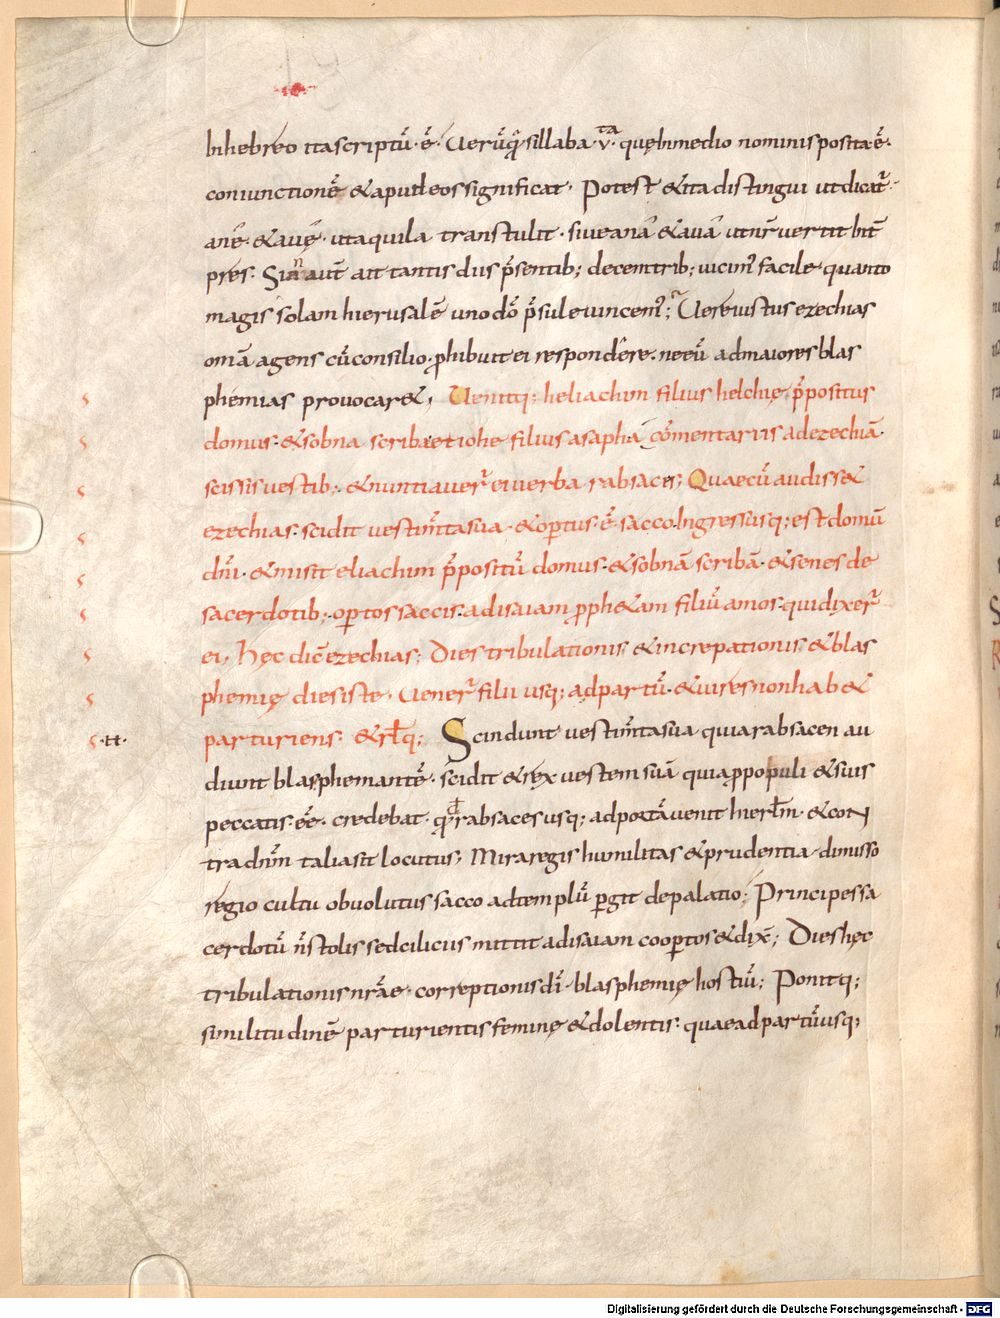 In hebreo ita scriptū · ē · Uerūq; sillaba · v · quę in medio nominis posita · ē ·
coniunctionē & apud eos significat · Potest & ita distingui ut dicat̄ ·
anē · & auę · ut aquila transtulit · siue anā & auā ut nr̄ uertit int̄
pres · Sin aut̄ ait tantis diis p̄sentib; decem trib; uicim' facile quanto
magis solam hierusalē uno dō p̄sule uincem'; Uere iustus ezechias
om̄a agens cū consilio · phibuit ei respondere · ne eū ad maiores blas
phemias prouocar&; Uenitq; heliachim filius helchię p̄positus
domus · & sobna scriba et iohe filius asaph a cōmentariis ad ezechiā ·
scissis uestib; · & nuntiauer̄ ei uerba rabsaces; Quae cū audiss&
ezechias · scidit uestim̄ta sua · & optus · ē · sacco · Ingressusq; est domū
dn̄i · & misit eliachim p̄positū domus · & sobnā scribā · & senes de
sacerdotib; · optos saccis · ad isaiam proph&am filiū amos · qui dixer̄
ei, Hęc dic̄ ezechias; Dies tribulationis & increpationis & blas
phemię dies iste · Uener̄ filii usq; ad partū · & uires non hab&
parturiens · & rl̄q;
S · tt · Scindunt uestim̄ta sua quia rabsacen au
diunt blasphemantē · scidit & rex uestem suā quia p populi & suis
peccatis · eē · credebat · qd̄ rabsaces usq; ad portā uenit hierl̄m · & con
tra dn̄m talia sit locutus; Mira regis humilitas & prudentia · dimisso
regio cultu obuolutus sacco ad templū pgit de palatio; Principes sa
cerdotū n̄ stolis sed ciliciis mittit ad isaiam cooptos & dix̄; Dies hęc
tribulationis nr̄ae · correptionis dī · blasphemię hostiū; Ponitq;
similitudinē parturientis feminę & dolentis · quae ad partū usq;
Digitalisierung gefördert durch die Deutsche Forschungsgemeinschaft - DFG